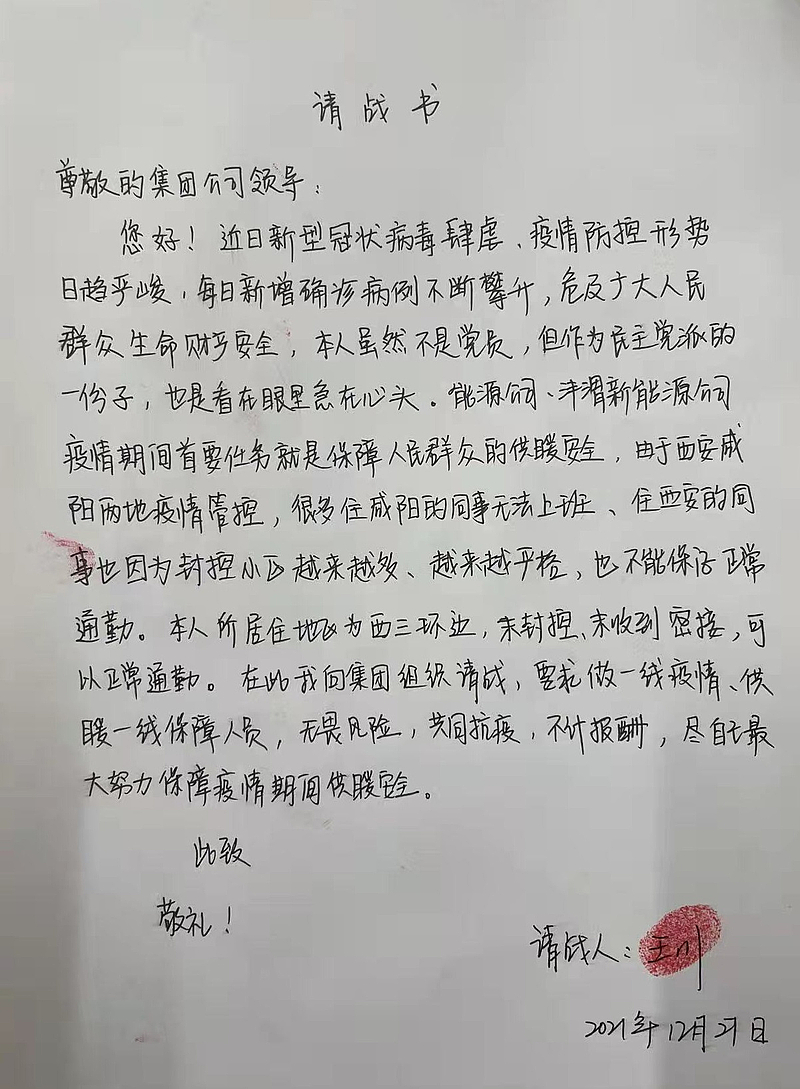 请战书
尊敬的集团公司领导：
您好！近日新型冠状病毒肆虐、疫情防控形势
日趋严峻，每日新增确诊病例不断攀升，危及广大人民
群众生命财产安全，本人虽然不是党员，但作为民主党派的
一份子，也是看在眼里急在心头。能源公司、沣渭新能源公司
疫情期间首要任务就是保障人民群众的供暖安全，由于西安咸
阳两地疫情管控，很多住咸阳的同事无法上班、住西安的同
事也因为封控小区越来越多、越来越严格，也不能保障正常
通勤。本人所居住地址为西三环边，未封控、未收到密接，可
以正常通勤。在此我向集团组织请战，要求做一线疫情、供
暖一线保障人员，无畏风险，共同抗疫，不计报酬，尽自己最
大努力保障疫情期间供暖安全。
此致
敬礼！
请战人：王川
2021年12月27日